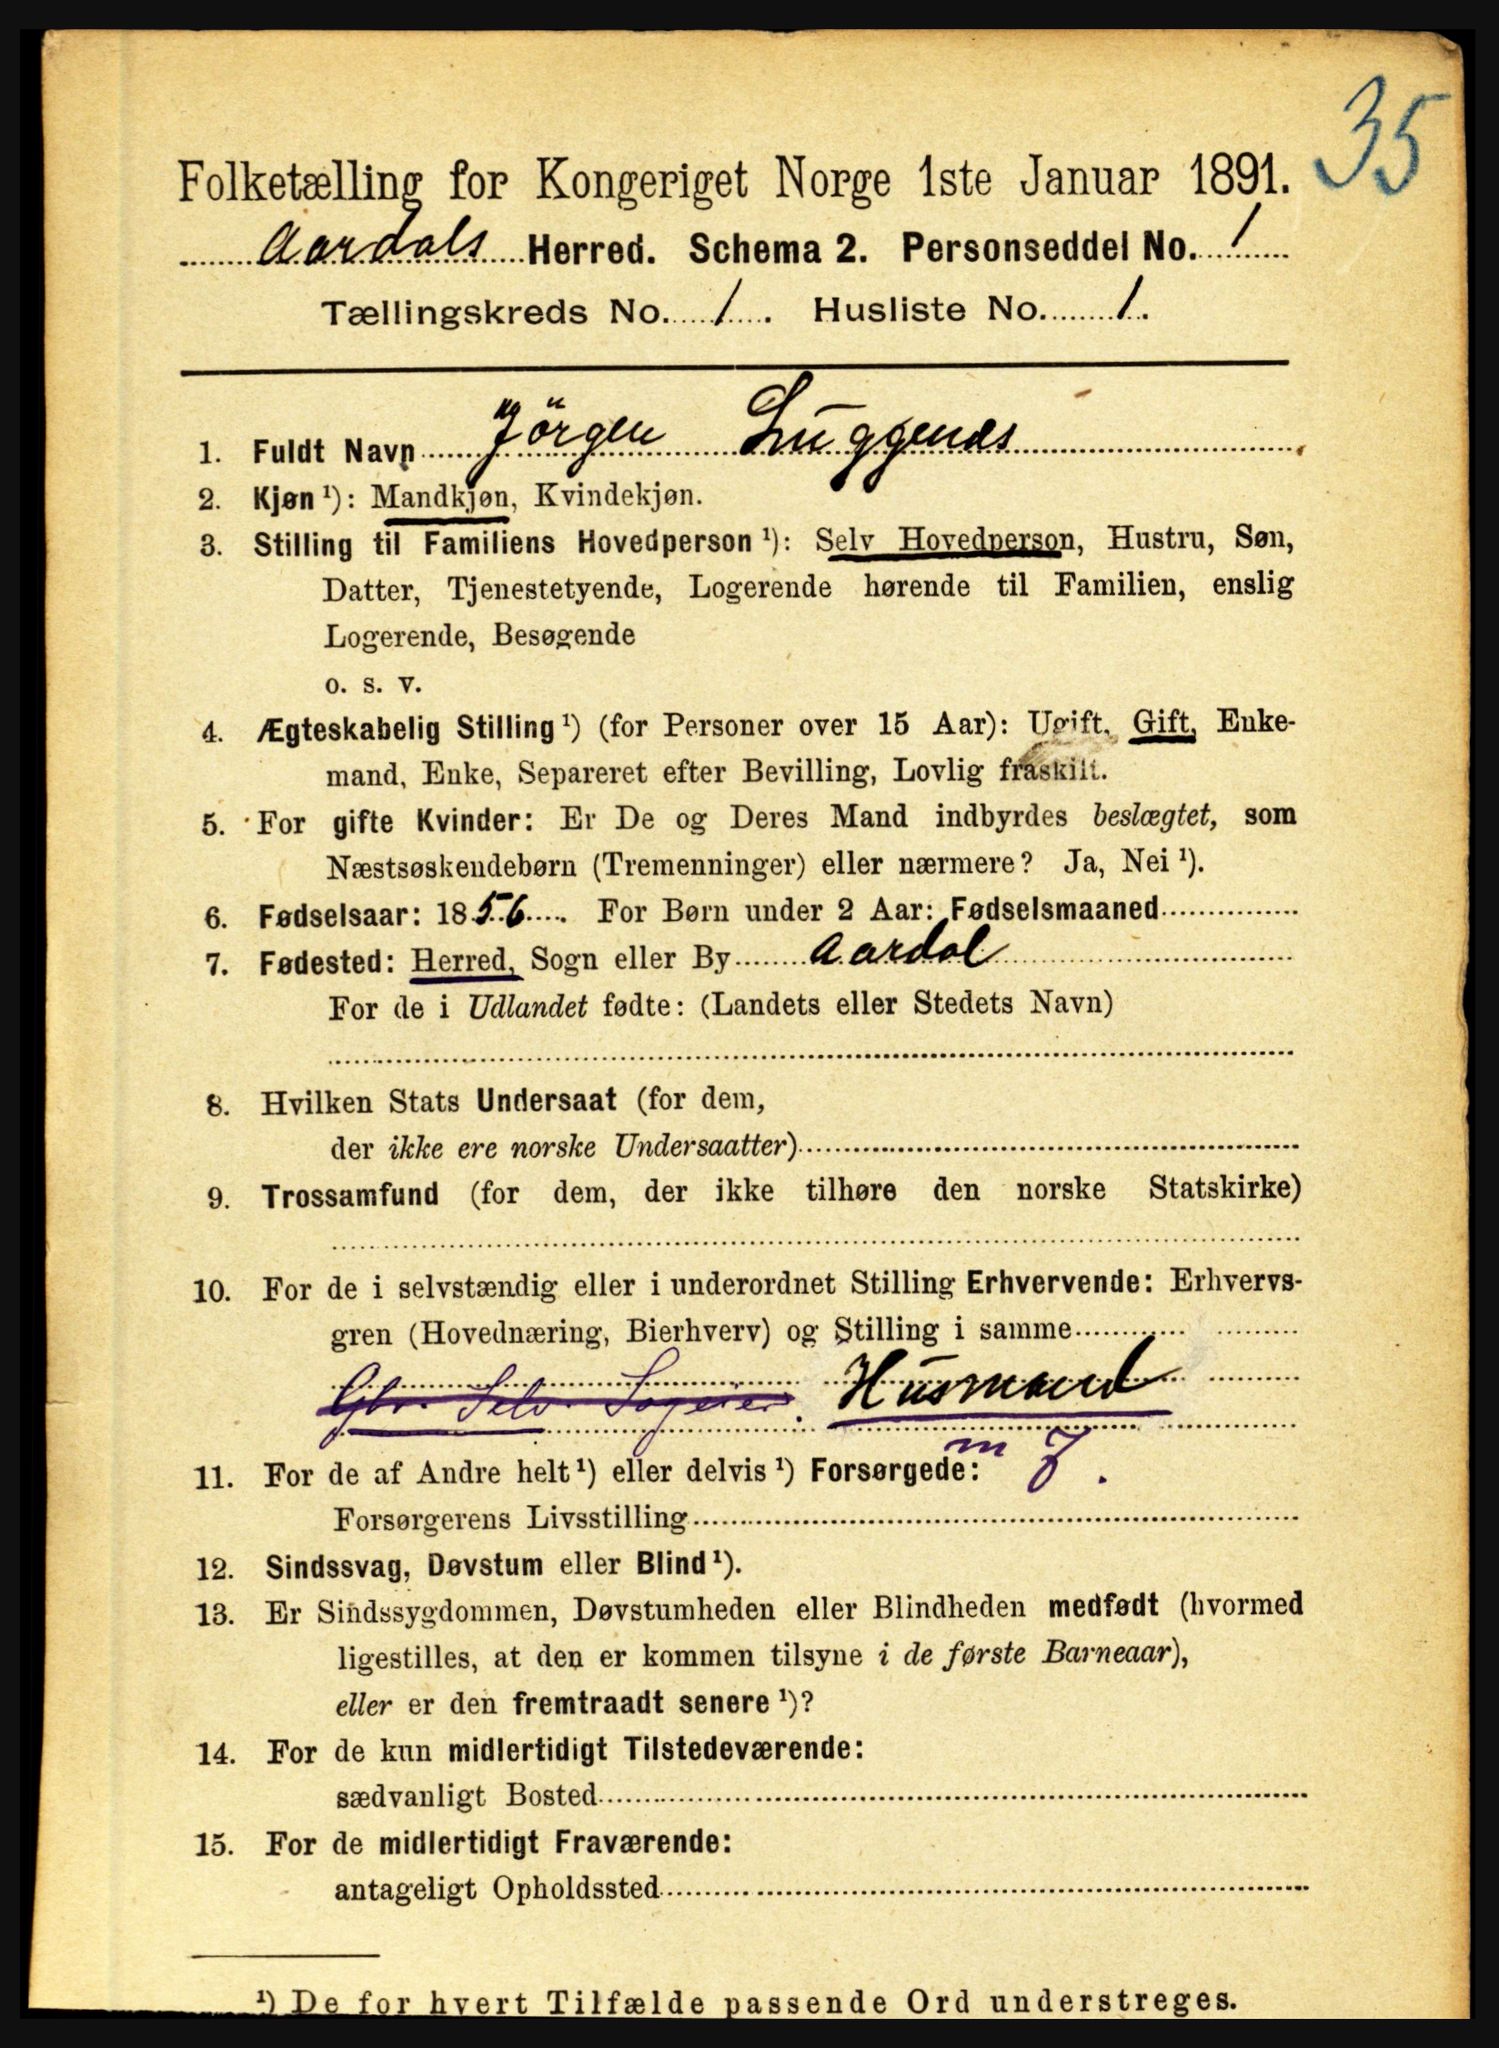 35
Folketælling for Kongeriget Norge 1ste Januar 1891.
Aardals Herred. Schema 2. Personseddel No. 1
Tællingskreds No. 1. Husliste No. 1.
1. Fuldt Navn Jörgen
2. Kjøn ¹): Mandkjøn, Kvindekjøn.
3. Stilling til Familiens Hovedperson ¹): Selv Hovedperson, Hustru, Søn,
Datter, Tjenestetyende, Logerende hørende til Familien, enslig
Logerende, Besøgende
o. s. v.
4. Ægteskabelig Stilling ¹) (for Personer over 15 Aar): Ugift, Gift, Enke-
mand, Enke, Separeret efter Bevilling, Lovlig fraskilt.
5. For gifte Kvinder: Er De og Deres Mand indbyrdes beslægtet, som
Næstsøskendebørn (Tremenninger) eller nærmere? Ja, Nei ¹).
6. Fødselsaar: 1856. For Børn under 2 Aar: Fødselsmaaned
7. Fødested: Herred, Sogn eller By Aardal
For de i Udlandet fødte: (Landets eller Stedets Navn)
8. Hvilken Stats Undersaat (for dem,
der ikke ere norske Undersaatter)
9. Trossamfund (for dem, der ikke tilhøre den norske Statskirke)
10. For de i selvstændig eller i underordnet Stilling Erhvervende: Erhvervs-
gren (Hovednæring, Bierhverv) og Stilling i samme
Gbr. Selv. Husmand
m J.
11. For de af Andre helt ¹) eller delvis ¹) Forsørgede:
Forsørgerens Livsstilling
12. Sindssvag, Døvstum eller Blind ¹).
13. Er Sindssygdommen, Døvstumheden eller Blindheden medfødt (hvormed
ligestilles, at den er kommen tilsyne i de første Barneaar),
eller er den fremtraadt senere ¹)?
14. For de kun midlertidigt Tilstedeværende:
sædvanligt Bosted
15. For de midlertidigt Fraværende:
antageligt Opholdssted
¹) De for hvert Tilfælde passende Ord understreges.